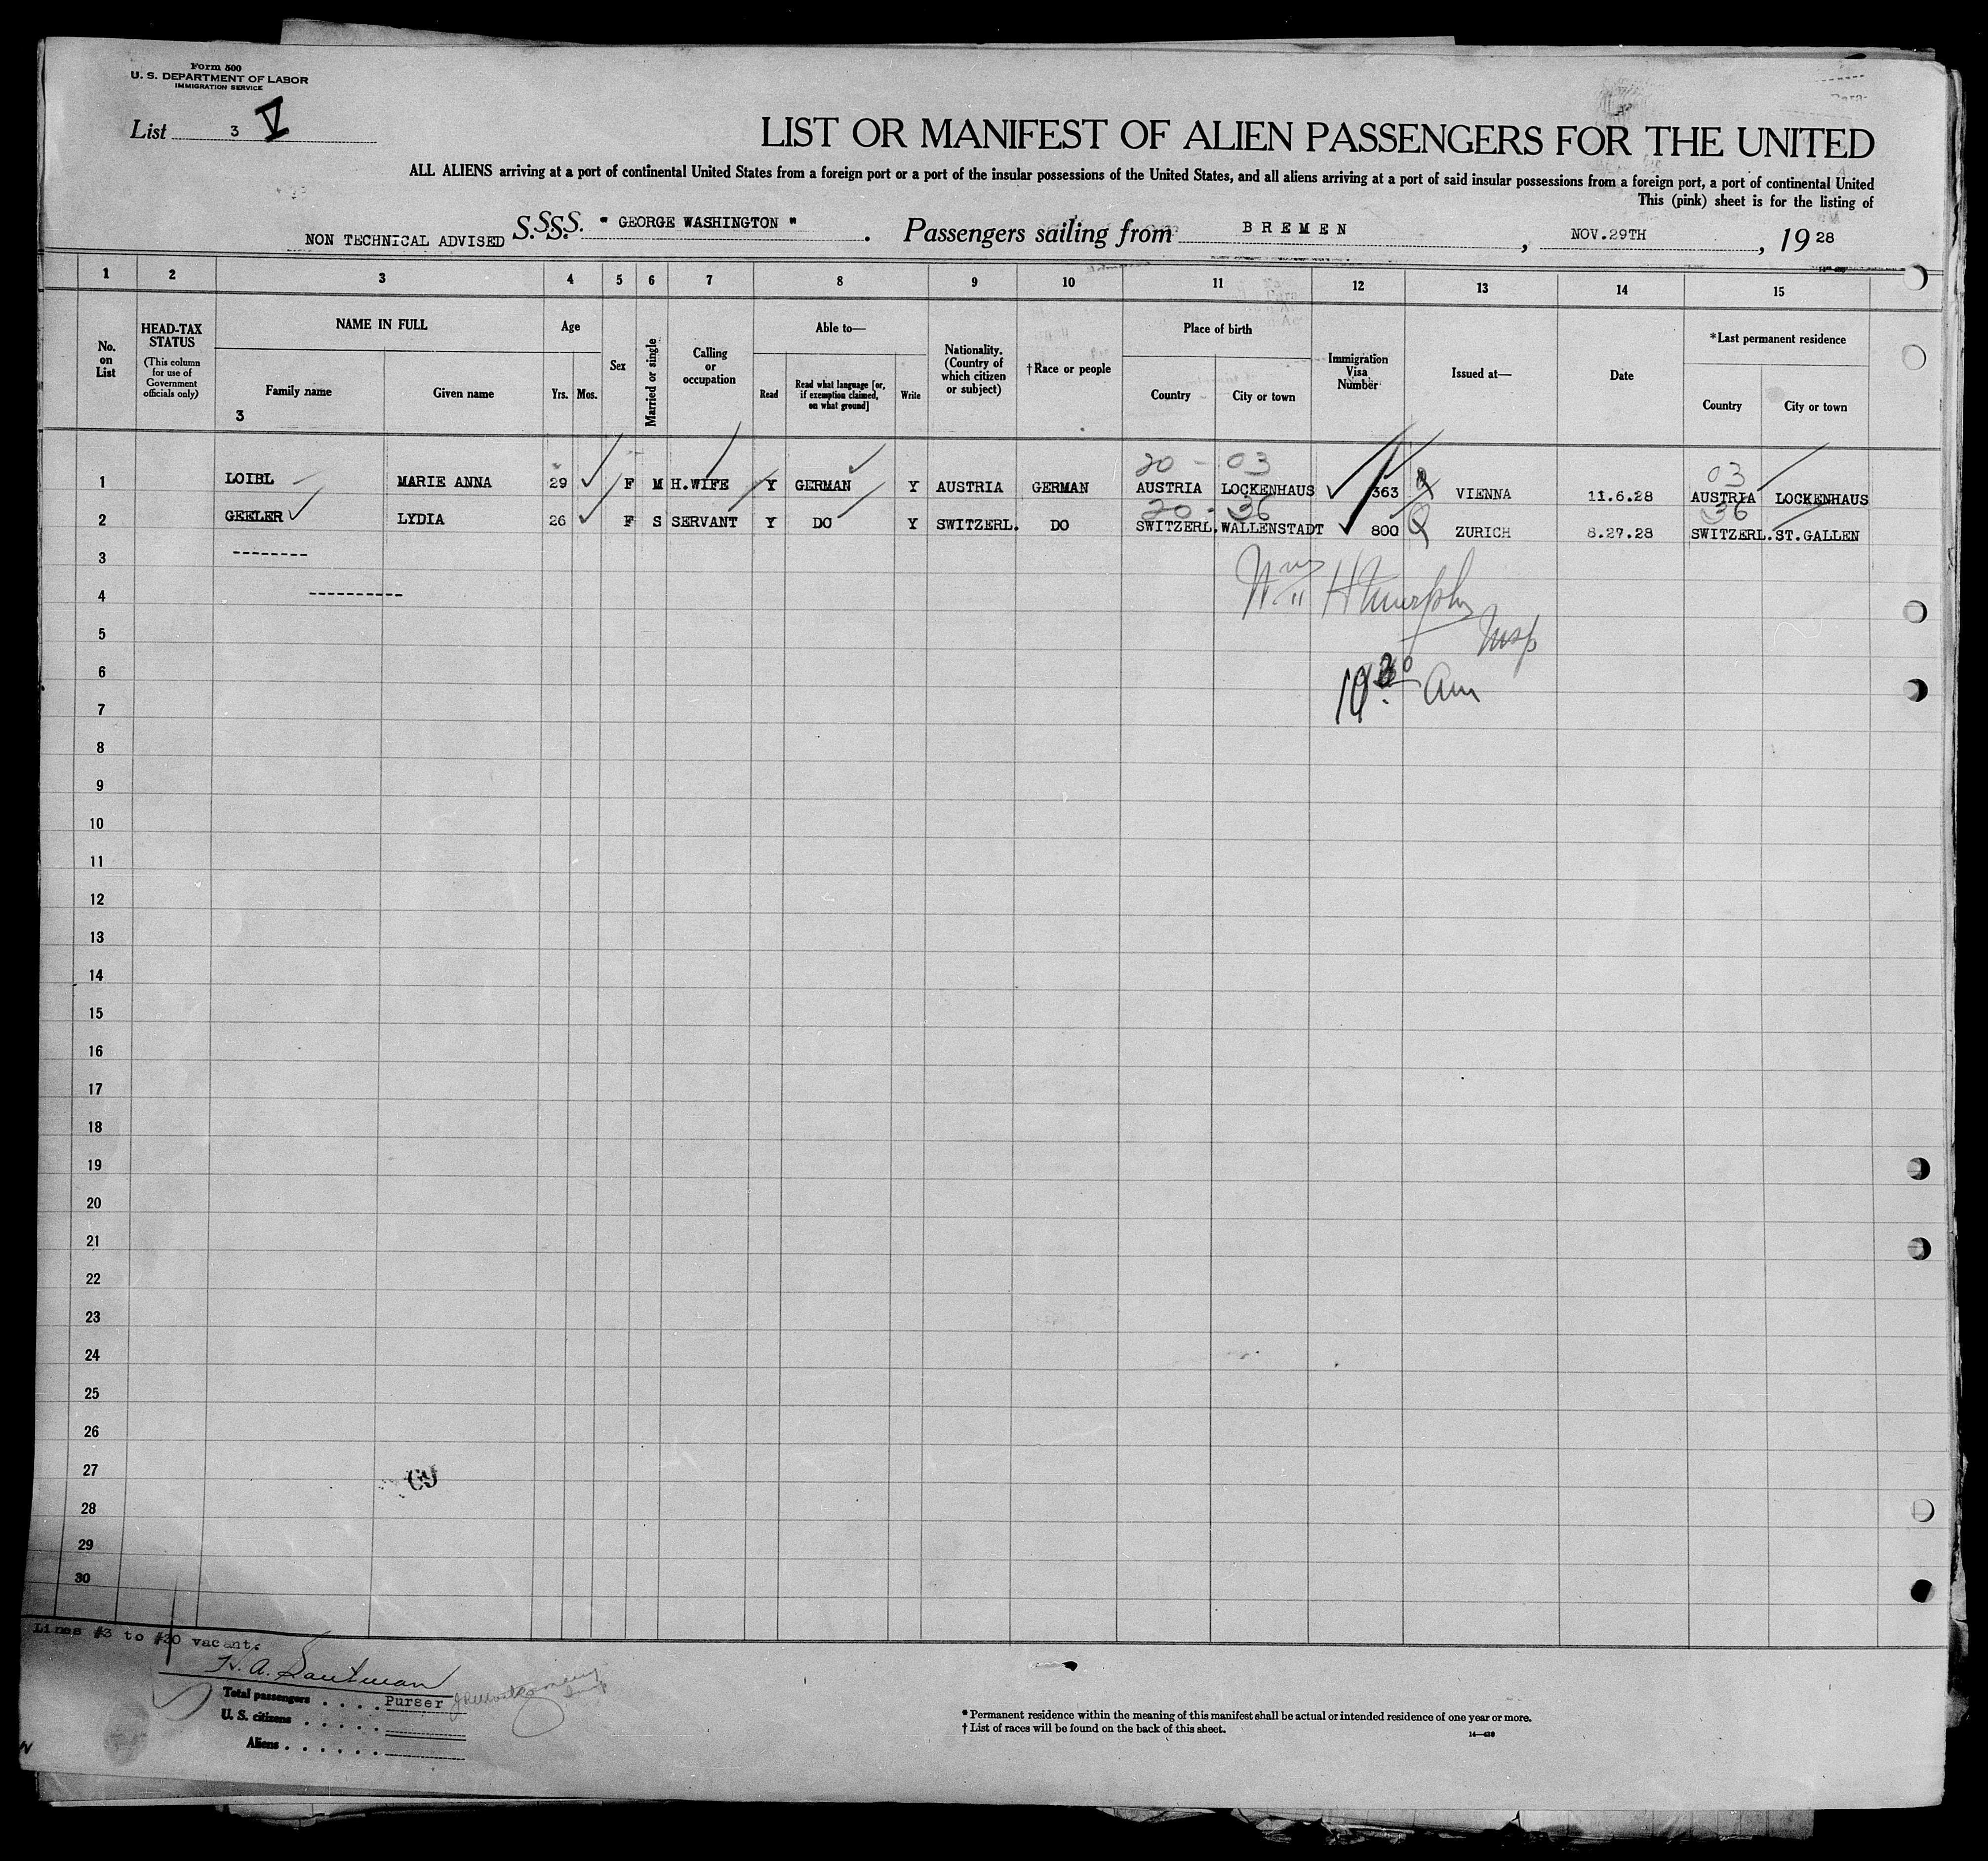 Form 500
U. S. DEPARTMENT OF LABOR
IMMIGRATION SERVICE
List 3 V
LIST OR MANIFEST OF ALIEN PASSENGERS FOR THE UNITED
ALL ALIENS arriving at a port of continental United States from a foreign port or a port of the insular possessions of the United States, and all aliens arriving at a port of said insular possessions from a foreign port, a port of continental United
This (pink) sheet is for the listing of
NON TECHNICAL ADVISED S.S.S.S. " GEORGE WASHINGTON " . Passengers sailing from BREMEN , NOV.29TH , 19 28
1 2 3 4 5 6 7 8 9 10 11 12 13 14 15
No. on List
HEAD-TAX STATUS
(This column for use of Government officials only)
NAME IN FULL
Family name
3
Given name
Age
Yrs. Mos.
Sex
Married or single
Calling or occupation
Able to—
Read
Read what language [or, if exemption claimed, on what ground]
Write
Nationality. (Country of which citizen or subject)
†Race or people
Place of birth
Country
City or town
Immigration Visa Number
Issued at—
Date
*Last permanent residence
Country
City or town
20 - 03 03
1 LOIBL MARIE ANNA 29 F M H.WIFE Y GERMAN Y AUSTRIA GERMAN AUSTRIA LOCKENHAUS 363 VIENNA 11.6.28 AUSTRIA LOCKENHAUS
20 - 36 36
2 GEELER LYDIA 26 F S SERVANT Y DO Y SWITZERL. DO SWITZERL. WALLENSTADT 800 Q ZURICH 8.27.28 SWITZERL. ST.GALLEN
3 ---------
4 -----------
Wm H Murphy
5
Insp
6
10 30 Am
7
8
9
10
11
12
13
14
15
16
17
18
19
20
21
22
23
24
25
26
27
28
29
30
Lines #3 to #30 vacant.
Total passengers . . . . Purser
U. S. citizens . . . . .
Aliens . . . . . .
* Permanent residence within the meaning of this manifest shall be actual or intended residence of one year or more.
† List of races will be found on the back of this sheet.
14—430